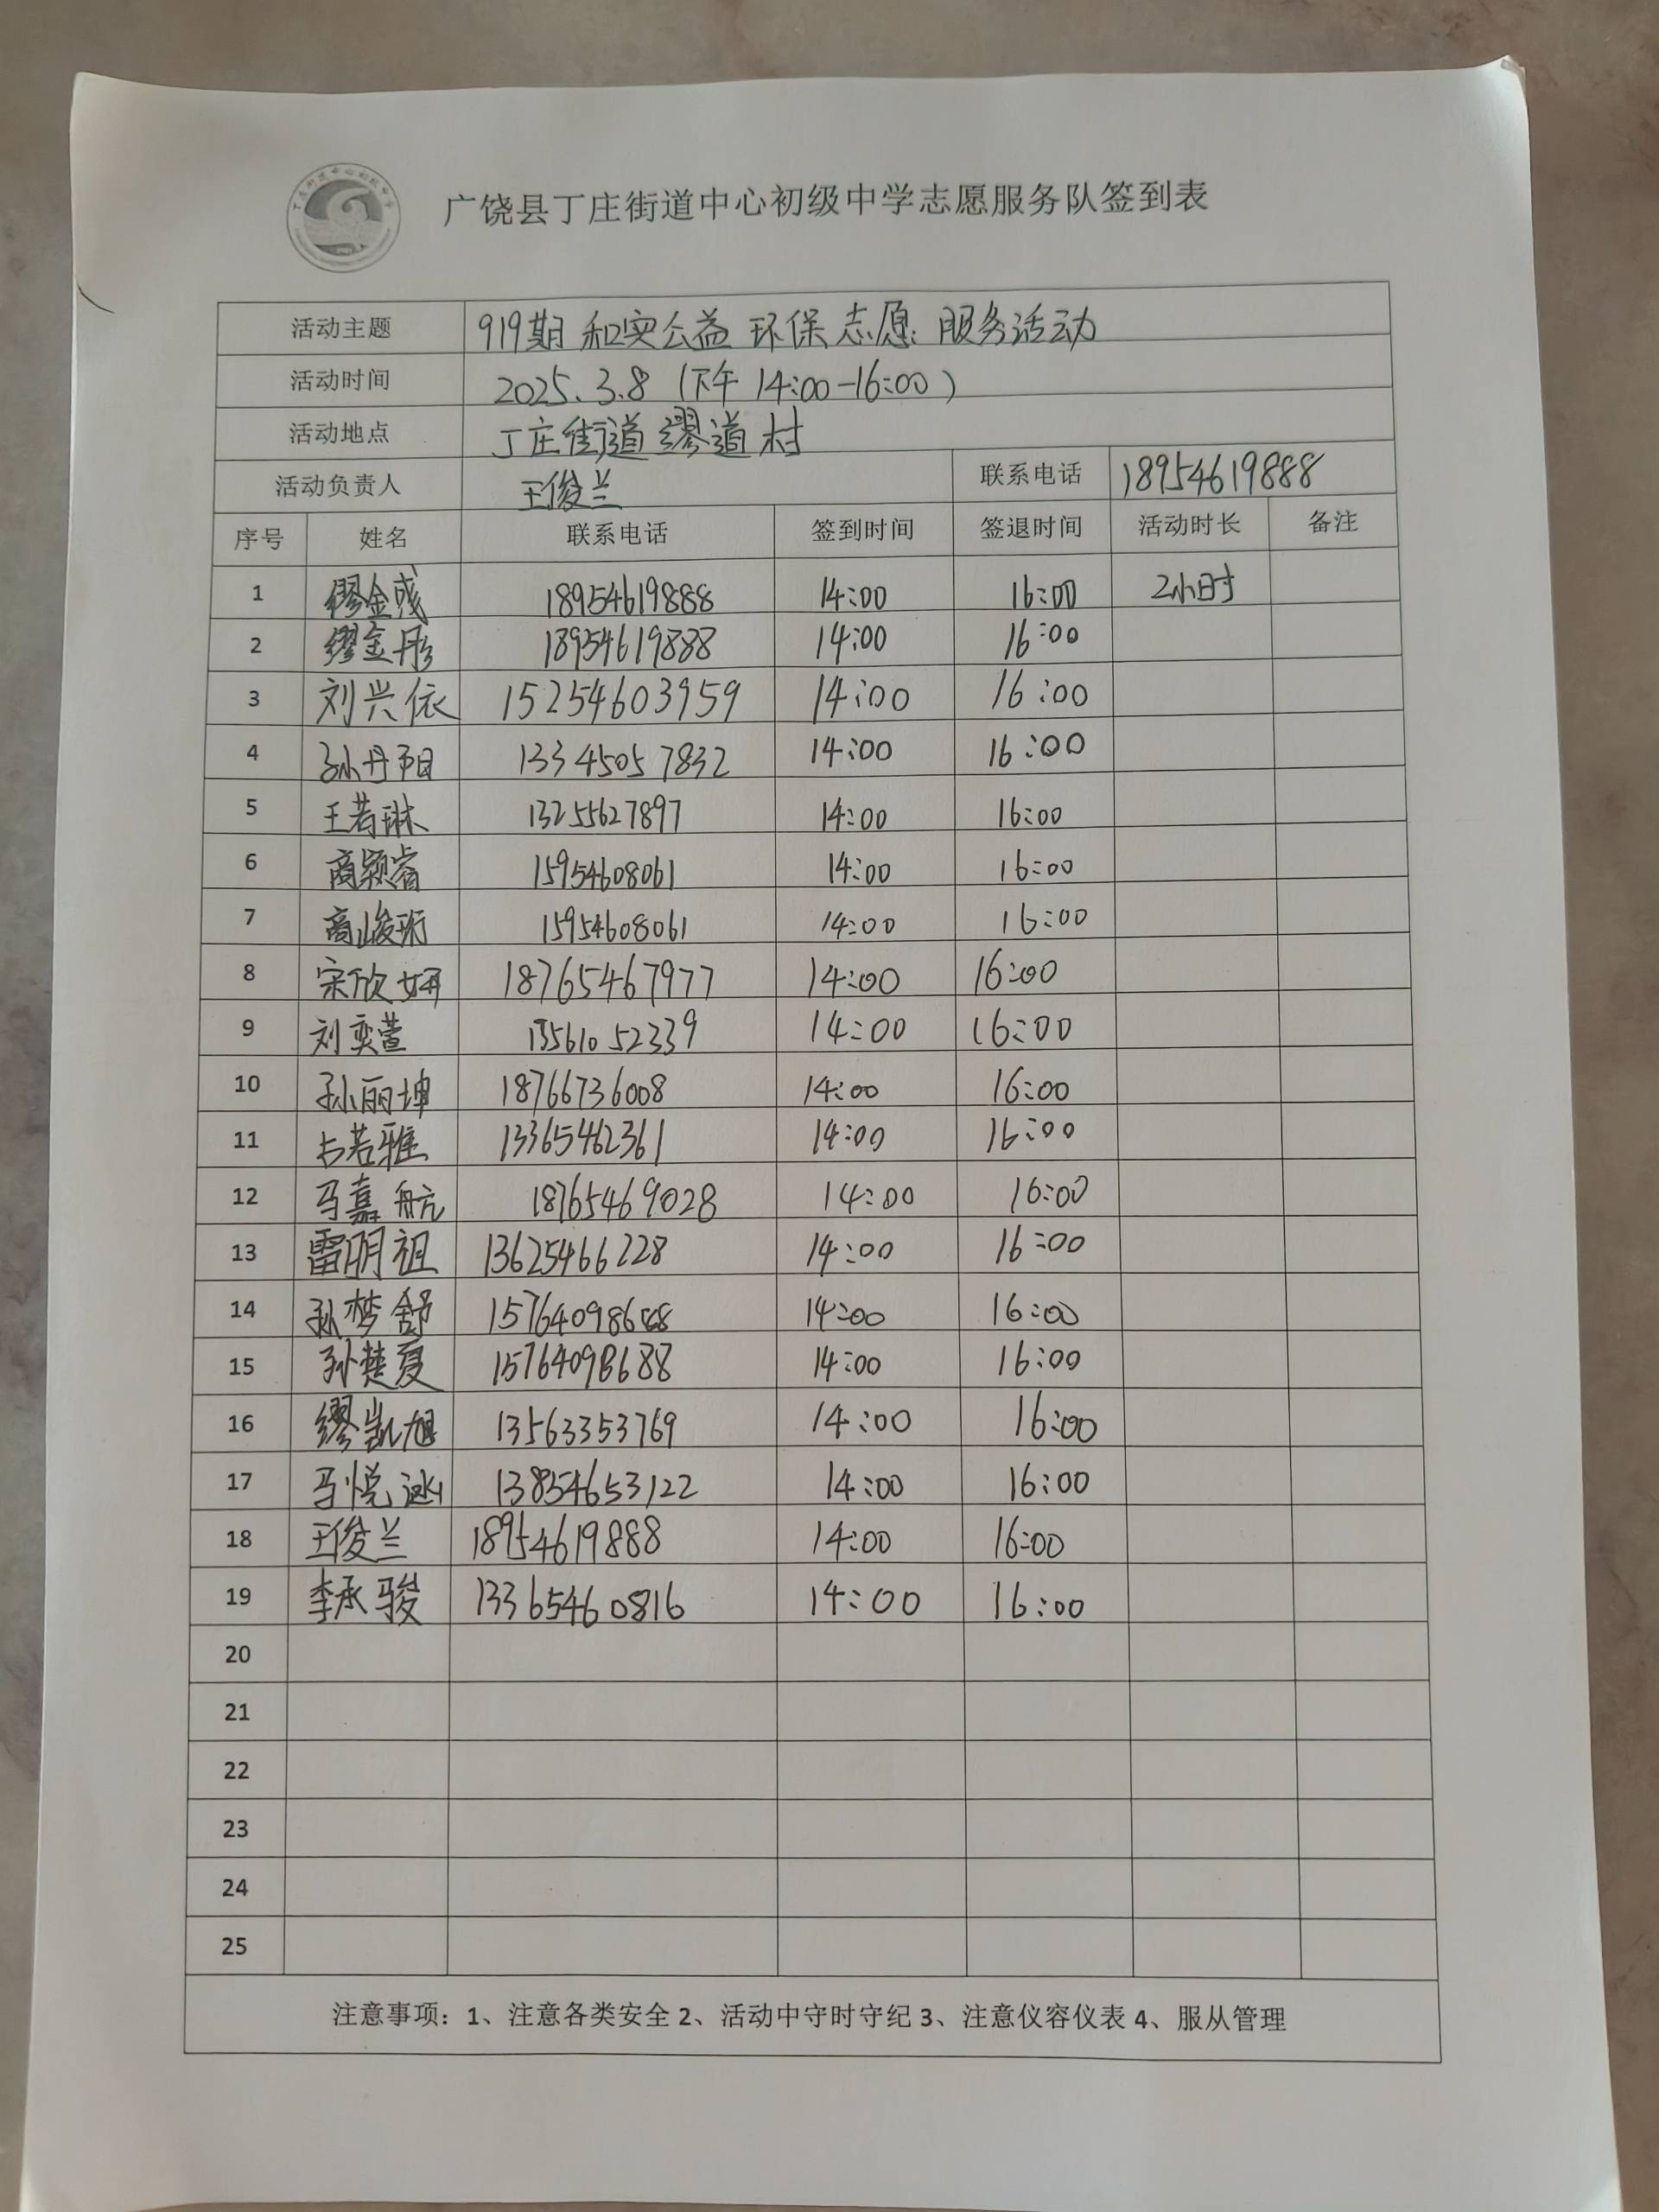 广饶县丁庄街道中心初级中学志愿服务队签到表
活动主题 919期 和实公益 环保志愿 服务活动
活动时间 2025.3.8 (下午 14:00-16:00)
活动地点 丁庄街道缪道村
活动负责人 王俊兰 联系电话 18954619888
序号 姓名 联系电话 签到时间 签退时间 活动时长 备注
1 缪金彧 18954619888 14:00 16:00 2小时
2 缪金彤 18954619888 14:00 16:00
3 刘兴依 15254603959 14:00 16:00
4 孙丹阳 13345057832 14:00 16:00
5 王若琳 13255627897 14:00 16:00
6 商颖睿 15954608061 14:00 16:00
7 商峻珩 15954608061 14:00 16:00
8 宋欣妍 18765467977 14:00 16:00
9 刘奕萱 13561052339 14:00 16:00
10 孙丽坤 18766736008 14:00 16:00
11 若雅 13365462361 14:00 16:00
12 马嘉航 18765469028 14:00 16:00
13 雷明祖 13625466228 14:00 16:00
14 孙梦舒 14:00 16:00
15 孙楚夏 15764098688 14:00 16:00
16 缪凯旭 13563353769 14:00 16:00
17 马悦 13854653122 14:00 16:00
18 王俊兰 18954619888 14:00 16:00
19 李承骏 13365460816 14:00 16:00
20
21
22
23
24
25
注意事项：1、注意各类安全 2、活动中守时守纪 3、注意仪容仪表 4、服从管理